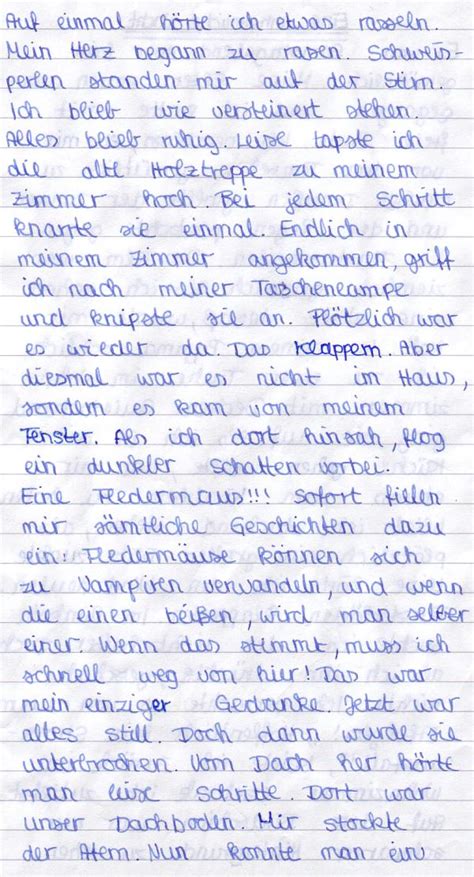 Auf einmal hörte ich etwas rasseln.
Mein Herz begann zu rasen. Schweis-
perlen standen mir auf der Stirn.
Ich blieb wie versteinert stehen.
Alles blieb ruhig. Leise tapste ich
die alte Holztreppe zu meinem
Zimmer hoch. Bei jedem Schritt
knarrte sie einmal. Endlich in
meinem Zimmer angekommen, griff
ich nach meiner Taschenlampe
und knipste sie an. Plötzlich war
es wieder da. Das Klappern. Aber
diesmal war es nicht im Haus,
sondern es kam von meinem
Fenster. Als ich dort hinsah, flog
ein dunkler Schatten vorbei.
Eine Fledermaus!!! Sofort fielen
mir sämtliche Geschichten dazu
ein: Fledermäuse können sich
zu Vampiren verwandeln, und wenn
die einen beißen, wird man selber
einer. Wenn das stimmt, muss ich
schnell weg von hier! Das war
mein einziger Gedanke. Jetzt war
alles still. Doch dann wurde sie
unterbrochen. Vom Dach her hörte
man leise Schritte. Dort war
unser Dachboden. Mir stockte
der Atem. Nun konnte man ein